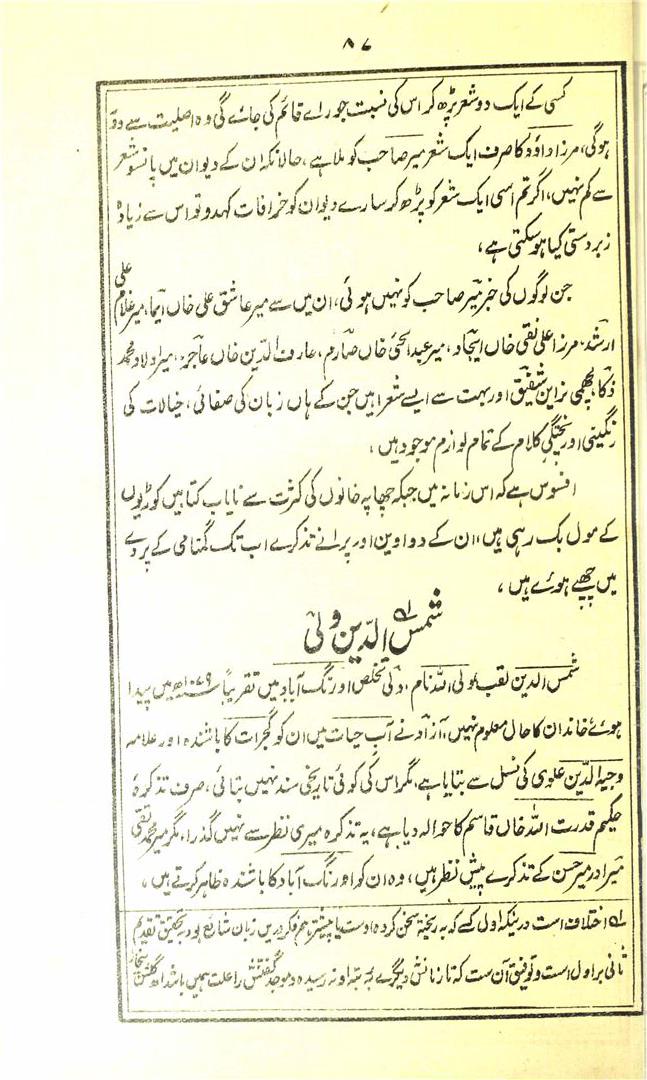 ۸۷
کسی کے ایک دو شعر پڑھ کر اس کی نسبت جو رائے قائم کی جائے گی وہ اصلیت سے دور
ہوگی، مرزا داؤد کا صرف ایک شعر میر صاحب کو ملا ہے، حالانکہ ان کے دیوان میں پانسو شعر
سے کم نہیں، اگر تم اسی ایک شعر کو پڑھ کر سارے دیوان کو خرافات کہدو تو اس سے زیادہ
زبردستی کیا ہو سکتی ہے،
جن لوگوں کی خبر میر صاحب کو نہیں ہوئی، ان میں سے میر عاشق علی خاں ایما، میر غلام علی
ارشد، مرزا علی نقی خاں ایجاد، میر عبدالحئی خاں صارم، عارف الدین خاں عاجز، میر اولاد محمد
ذکا، لچھمی نراین شفیق اور بہت سے ایسے شعرا ہیں جن کے ہاں زبان کی صفائی، خیالات کی
رنگینی اور پختگی کلام کے تمام لوازم موجود ہیں،
افسوس ہے کہ اس زمانہ میں جبکہ چھاپہ خانوں کی کثرت سے نایاب کتابیں کوڑیوں
کے مول بک رہی ہیں، ان کے دواوین اور پرانے تذکرے اب تک گمنامی کے پردے
میں چھپے ہوئے ہیں،
شمس الدین ولی
شمس الدین لقب، ولی اللہ نام، ولی تخلص اورنگ آباد میں تقریباً ۱۰۷۹ھ میں پیدا
ہوئے خاندان کا حال معلوم نہیں، آزاد نے آب حیات میں ان کو گجرات کا باشندہ اور علامہ
وجیہ الدین علوی کی نسل سے بتایا ہے، مگر اس کی کوئی تاریخی سند نہیں بتائی، صرف تذکرہ
حکیم قدرت اللہ خاں قاسم کا حوالہ دیا ہے، یہ تذکرہ میری نظر سے نہیں گذرا، مگر میر محمد تقی
میر اور میر حسن کے تذکرے پیش نظر ہیں، وہ ان کو اورنگ آباد کا باشندہ ظاہر کرتے ہیں،
لہ اختلاف است درینکہ اول کسے کہ بہ ریختہ سخن کردہ اوست یا پیشتر ہم فکر دریں زبان شایع بود بہ تحقیق تقدیم
ثانی بر اول است و توفیق آن ست کہ تا زمانش دیگرے بہ رسیدہ و موجد گفتنش را علت ہمیں باشد اھ گلشن